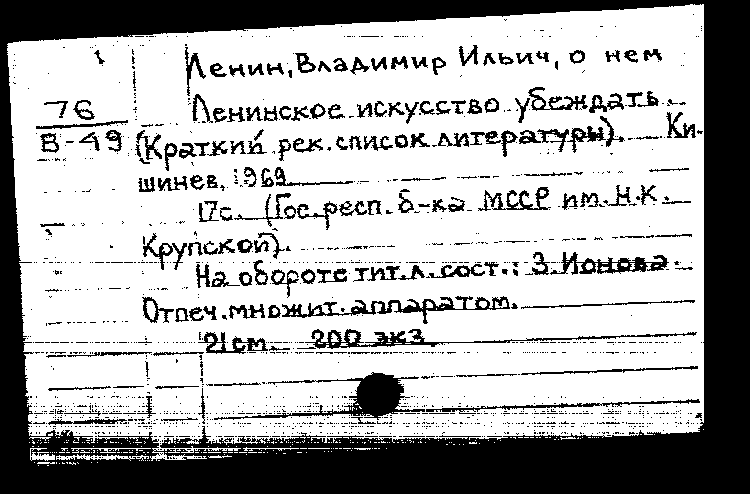 Ленин, Владимир Ильич, о нем
76
В-49
Ленинское искусство убеждать.
(Краткий рек. список литературы). Ки-
шинев, 1969.
17с. (Гос. респ. б-ка МССР им. Н.К.
Крупской).
На обороте тит. л. сост.: З. Ионова.
Отпеч. множит. аппаратом.
21см. 200 экз.